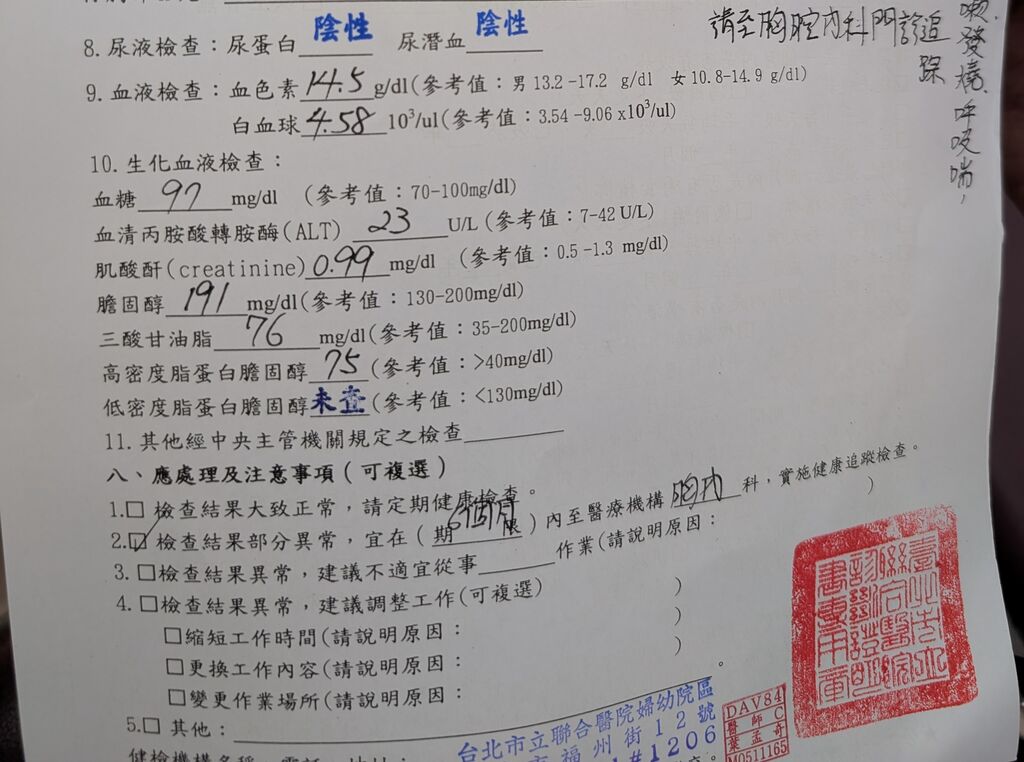 8. 尿液檢查：尿蛋白 陰性 尿潛血 陰性
請至胸腔內科門診追
踪
嗽.發燒.呼吸喘,
9. 血液檢查：血色素 14.5 g/dl(參考值：男 13.2-17.2 g/dl 女 10.8-14.9 g/dl)
白血球 4.58 10³/ul(參考值：3.54-9.06 x10³/ul)
10. 生化血液檢查：
血糖 97 mg/dl (參考值：70-100mg/dl)
血清丙胺酸轉胺酶(ALT) 23 U/L (參考值：7-42 U/L)
肌酸酐(creatinine) 0.99 mg/dl (參考值：0.5-1.3 mg/dl)
膽固醇 191 mg/dl(參考值：130-200mg/dl)
三酸甘油脂 76 mg/dl(參考值：35-200mg/dl)
高密度脂蛋白膽固醇 75 (參考值：>40mg/dl)
低密度脂蛋白膽固醇 未查 (參考值：<130mg/dl)
11. 其他經中央主管機關規定之檢查
八、應處理及注意事項(可複選)
1.□ 檢查結果大致正常，請定期健康檢查。
2.☑ 檢查結果部分異常，宜在(期 6個月 限)內至醫療機構 胸內 科，實施健康追蹤檢查。
3.□檢查結果異常，建議不適宜從事 作業(請說明原因： )
4.□檢查結果異常，建議調整工作(可複選)
□縮短工作時間(請說明原因： )
□更換工作內容(請說明原因： )
□變更作業場所(請說明原因： )
5.□ 其他： 。
台北市立聯合醫院婦幼院區
福州街12號
#1206
DAV84
醫師 C
葉孟奇
M0511165